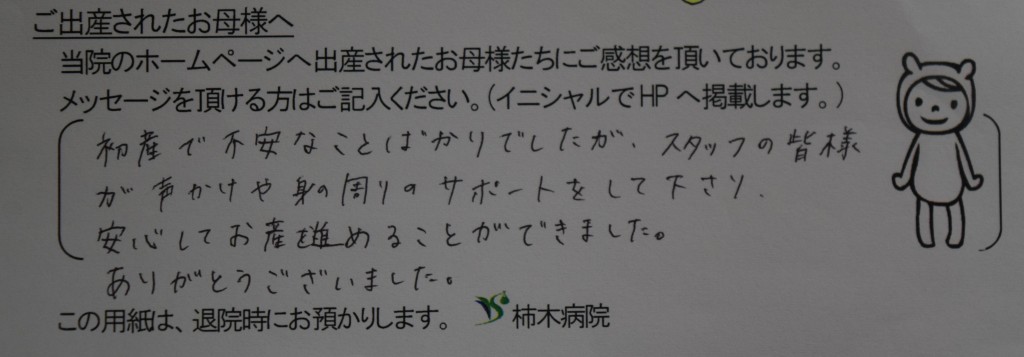 ご出産されたお母様へ
当院のホームページへ出産されたお母様たちにご感想を頂いております。
メッセージを頂ける方はご記入ください。(イニシャルでHPへ掲載します。)
初産で不安なことばかりでしたが、スタッフの皆様
が声かけや身の周りのサポートをして下さり、
安心してお産を進めることができました。
ありがとうございました。
この用紙は、退院時にお預かりします。 柿木病院